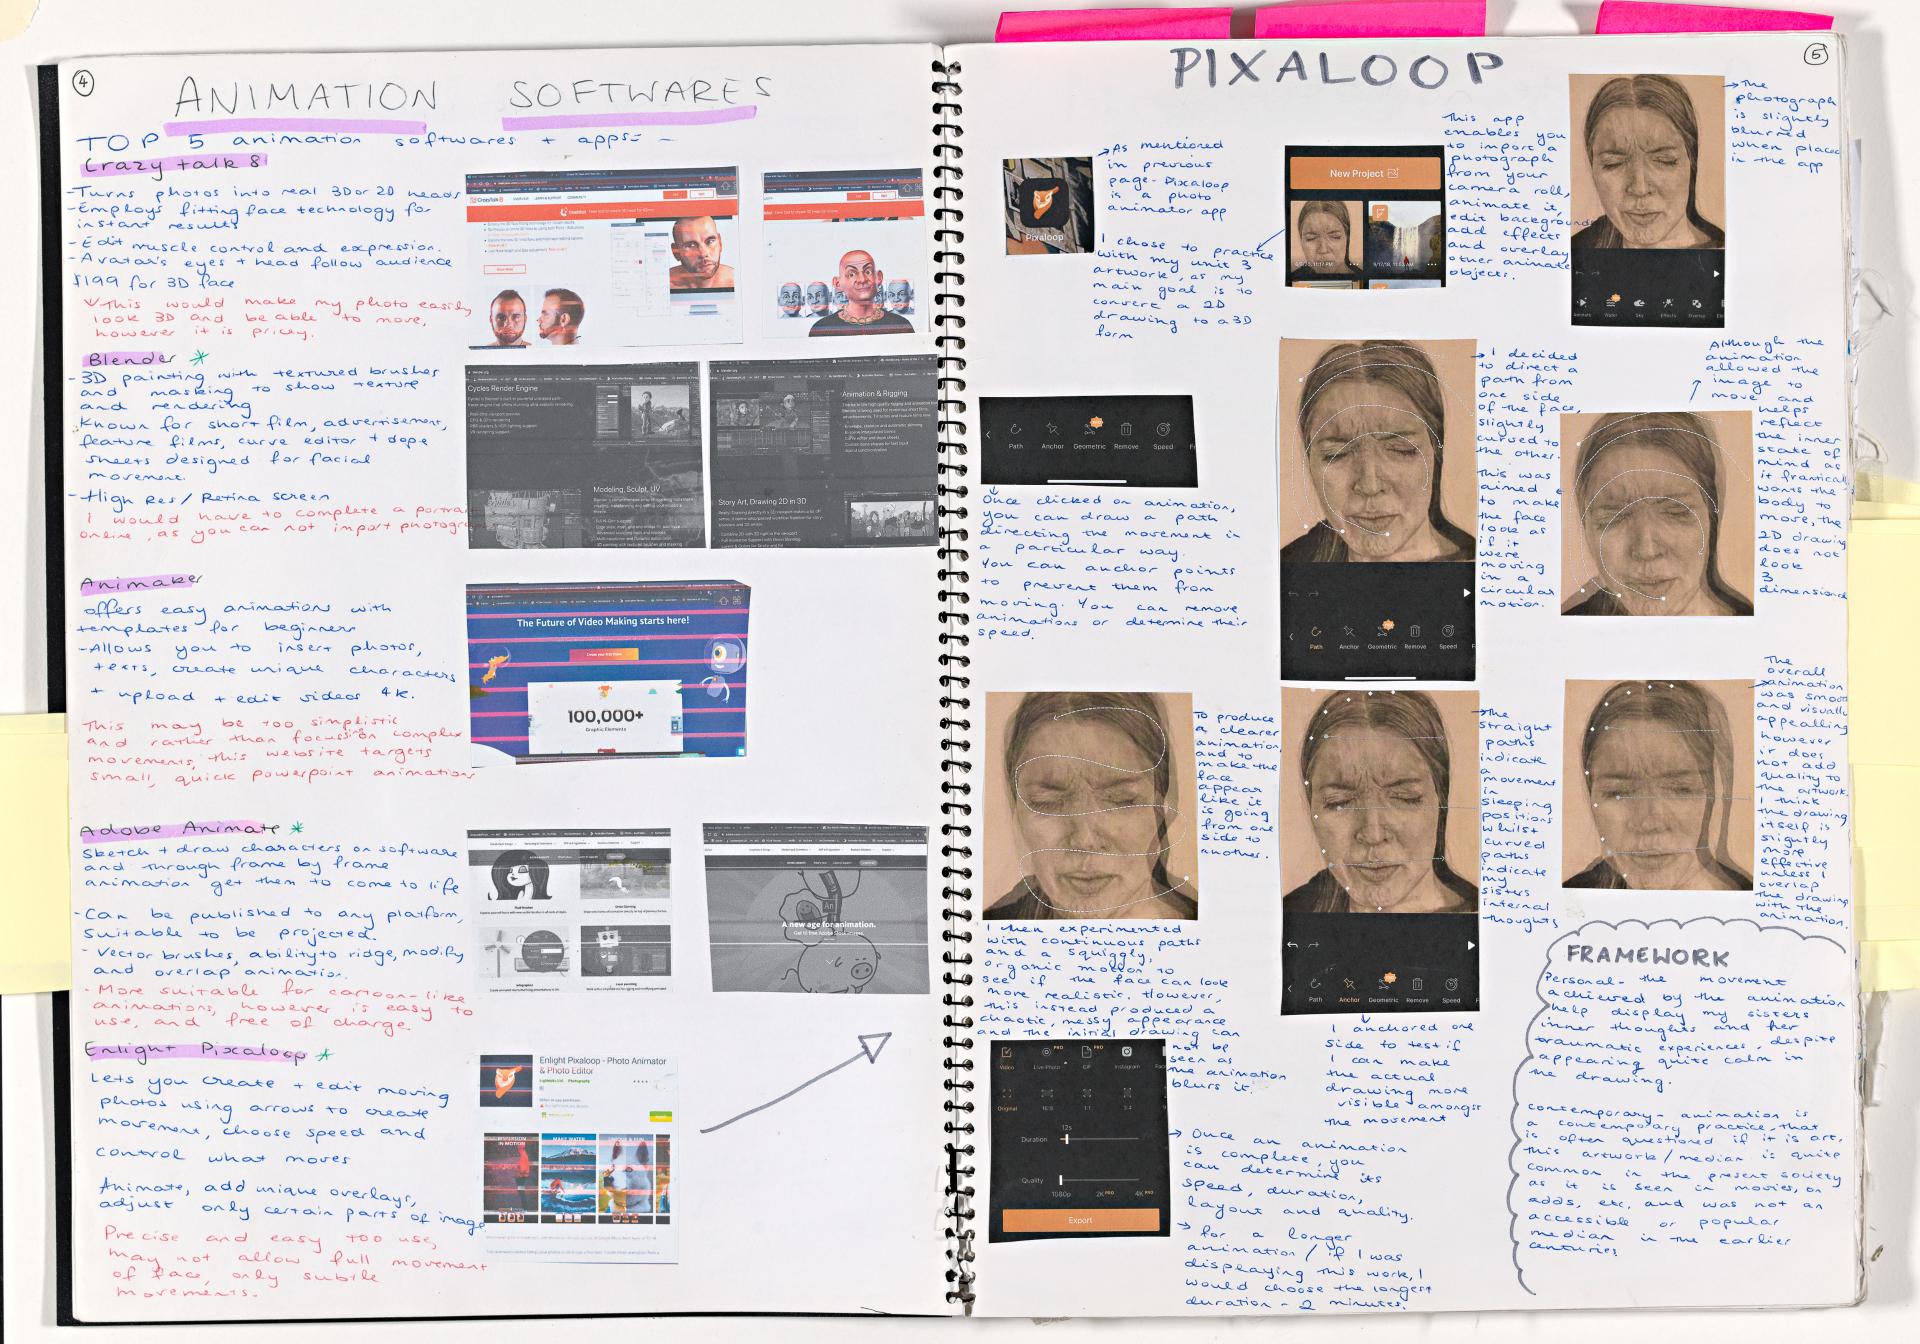 4
ANIMATION SOFTWARES
TOP 5 animation softwares + apps: -
Crazy talk 8
- Turns photos into real 3D or 2D heads
- Employs fitting face technology for
instant results
- Edit muscle control and expression.
- Avatar's eyes + head follow audience
$199 for 3D face
This would make my photo easily
look 3D and be able to move,
however it is pricey.
Blender *
- 3D painting with textured brushes
and masking to show texture
and rendering
Known for short film, advertisement,
feature films, curve editor + dope
sheets designed for facial
movement.
- High Res / Retina screen
I would have to complete a portrait
online, as you can not import photogra
Cycles Render Engine
Animation & Rigging
Modeling, Sculpt, UV
Story Art, Drawing 2D in 3D
Animaker
offers easy animations with
templates for beginners
- Allows you to insert photos,
texts, create unique characters
+ upload + edit videos 4K.
This may be too simplistic
and rather than focussion complex
movements, this website targets
small, quick powerpoint animations
The Future of Video Making starts here!
100,000+
Graphic Elements
Adobe Animate *
Sketch + draw characters on software
and through frame by frame
animation get them to come to life
- Can be published to any platform,
suitable to be projected.
- Vector brushes, ability to ridge, modify
and overlap animation.
- More suitable for cartoon-like
animations, however is easy to
use, and free of charge.
A new age for animation.
An
Enlight Pixaloop *
Lets you create + edit moving
photos using arrows to create
movement, choose speed and
control what moves
Animate, add unique overlays,
adjust only certain parts of image
Precise and easy too use,
may not allow full movement
of face, only subtle
movements.
Enlight Pixaloop - Photo Animator
& Photo Editor
DISPERSION
IN MOTION
MAKE WATER
UNIQUE & FUN
PIXALOOP
5
Pixaloop
As mentioned
in previous
page - Pixaloop
is a photo
animator app
I chose to practice
with my unit 3
artwork, as my
main goal is to
convert a 2D
drawing to a 3D
form
New Project
9/17/18, 11:53 AM
This app
enables you
to import a
photograph
from your
camera roll,
animate it,
edit backgrounds
add effects
and overlay
other animate
objects.
The
photograph
is slightly
blurred
when place
in the app
Animate Water Sky Effects Overlay
Path Anchor Geometric Remove Speed
Once clicked on animation,
you can draw a path
directing the movement in
a particular way.
You can anchor points
to prevent them from
moving. You can remove
animations or determine their
speed.
I decided
to direct a
path from
one side
of the face,
slightly
curved to
the other.
This was
aimed
to make
the face
look as
if it
were
moving
in a
circular
motion.
Path Anchor Geometric Remove Speed
Although the
animation
allowed the
image to
move and
helps
reflect
the inner
state of
mind as
it frantically
wants the
body to
move, the
2D drawing
does not
look
3
dimensiona
To produce
a clearer
animation
and to
make the
face
appear
like it
is going
from one
side to
another.
I then experimented
with continuous paths
and a squiggly,
organic motion to
see if the face can look
more realistic. However,
this instead produced a
chaotic, messy appearance
and the initial drawing can
not be
seen as
the animation
blurs it.
The
straight
paths
indicate
a
movement
in
sleeping
positions
whilst
curved
paths
indicate
my
sisters
internal
thoughts
Path Anchor Geometric Remove Speed
I anchored one
side to test if
I can make
the actual
drawing more
visible amongst
the movement
The
overall
animation
was smooth
and visually
appealling
however
it does
not add
quality to
the artwork.
I think
the drawing
itself is
slightly
more
effective
unless I
overlap
the drawing
with the
animation.
Video Live Photo PRO GIF PRO Instagram
Original 16:9 1:1
12s
Duration
Quality
1080p 2K PRO 4K PRO
Export
Once an animation
is complete, you
can determine its
speed, duration,
layout and quality.
for a longer
animation / if I was
displaying this work, I
would choose the longest
duration - 2 minutes.
FRAMEWORK
Personal - the movement
achieved by the animation
help display my sisters
inner thoughts and her
traumatic experiences, despite
appearing quite calm in
the drawing.
contemporary - animation is
a contemporary practice, that
is often questioned if it is art.
this artwork / median is quite
common in the present society
as it is seen in movies, on
adds, etc, and was not an
accessible or popular
median in the earlier
centuries.